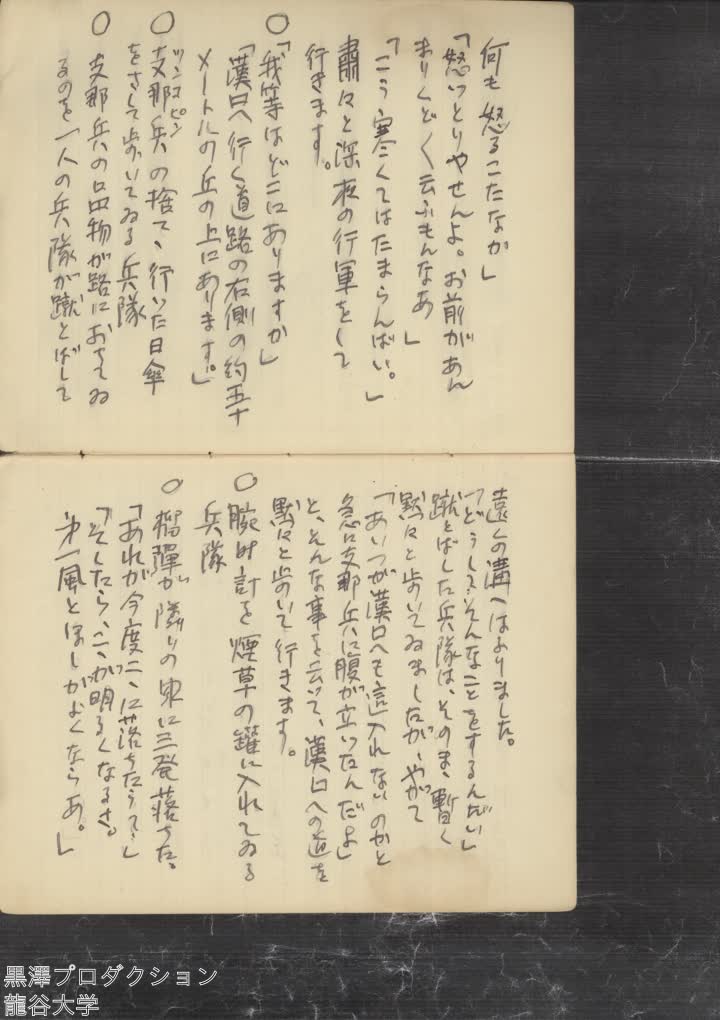 何も怒るこたなか」
「怒つとりやせんよ。お前があん
まりくどく云ふもんなあ」
「こう寒くてはたまらんばい。」
粛々と深夜の行軍をして
行きます。
○「我等はどこにありますか」
「漢口へ行く道路の右側の約五十
メートルの丘の上にあります。」
○支那兵の捨てゝ行いた日傘
ツンコピン
をさして歩いてゐる兵隊
○支那兵の品物が路におちてゐ
るのを一人の兵隊が蹴とばして
遠くの溝へはまりました。
「どうしてそんなことをするんだい」
蹴とばした兵隊は、そのまゝ暫く
黙々と歩いてゐましたが、やがて
「あいつが漢口へも這入れないのかと
急に支那兵に腹が立つたんだよ」
と、そんな事を云いて、漢口への道を
黙々と歩いて行きます。
○腕時計を煙草の罐に入れてゐる
兵隊
○榴彈が隣りの里に三発落ちた。
「あれが今度こゝに落ちたらて」
「そしたら、こゝが明るくなるさ。
第一風とほしがよくならあ。」
黒澤プロダクション
龍谷大学